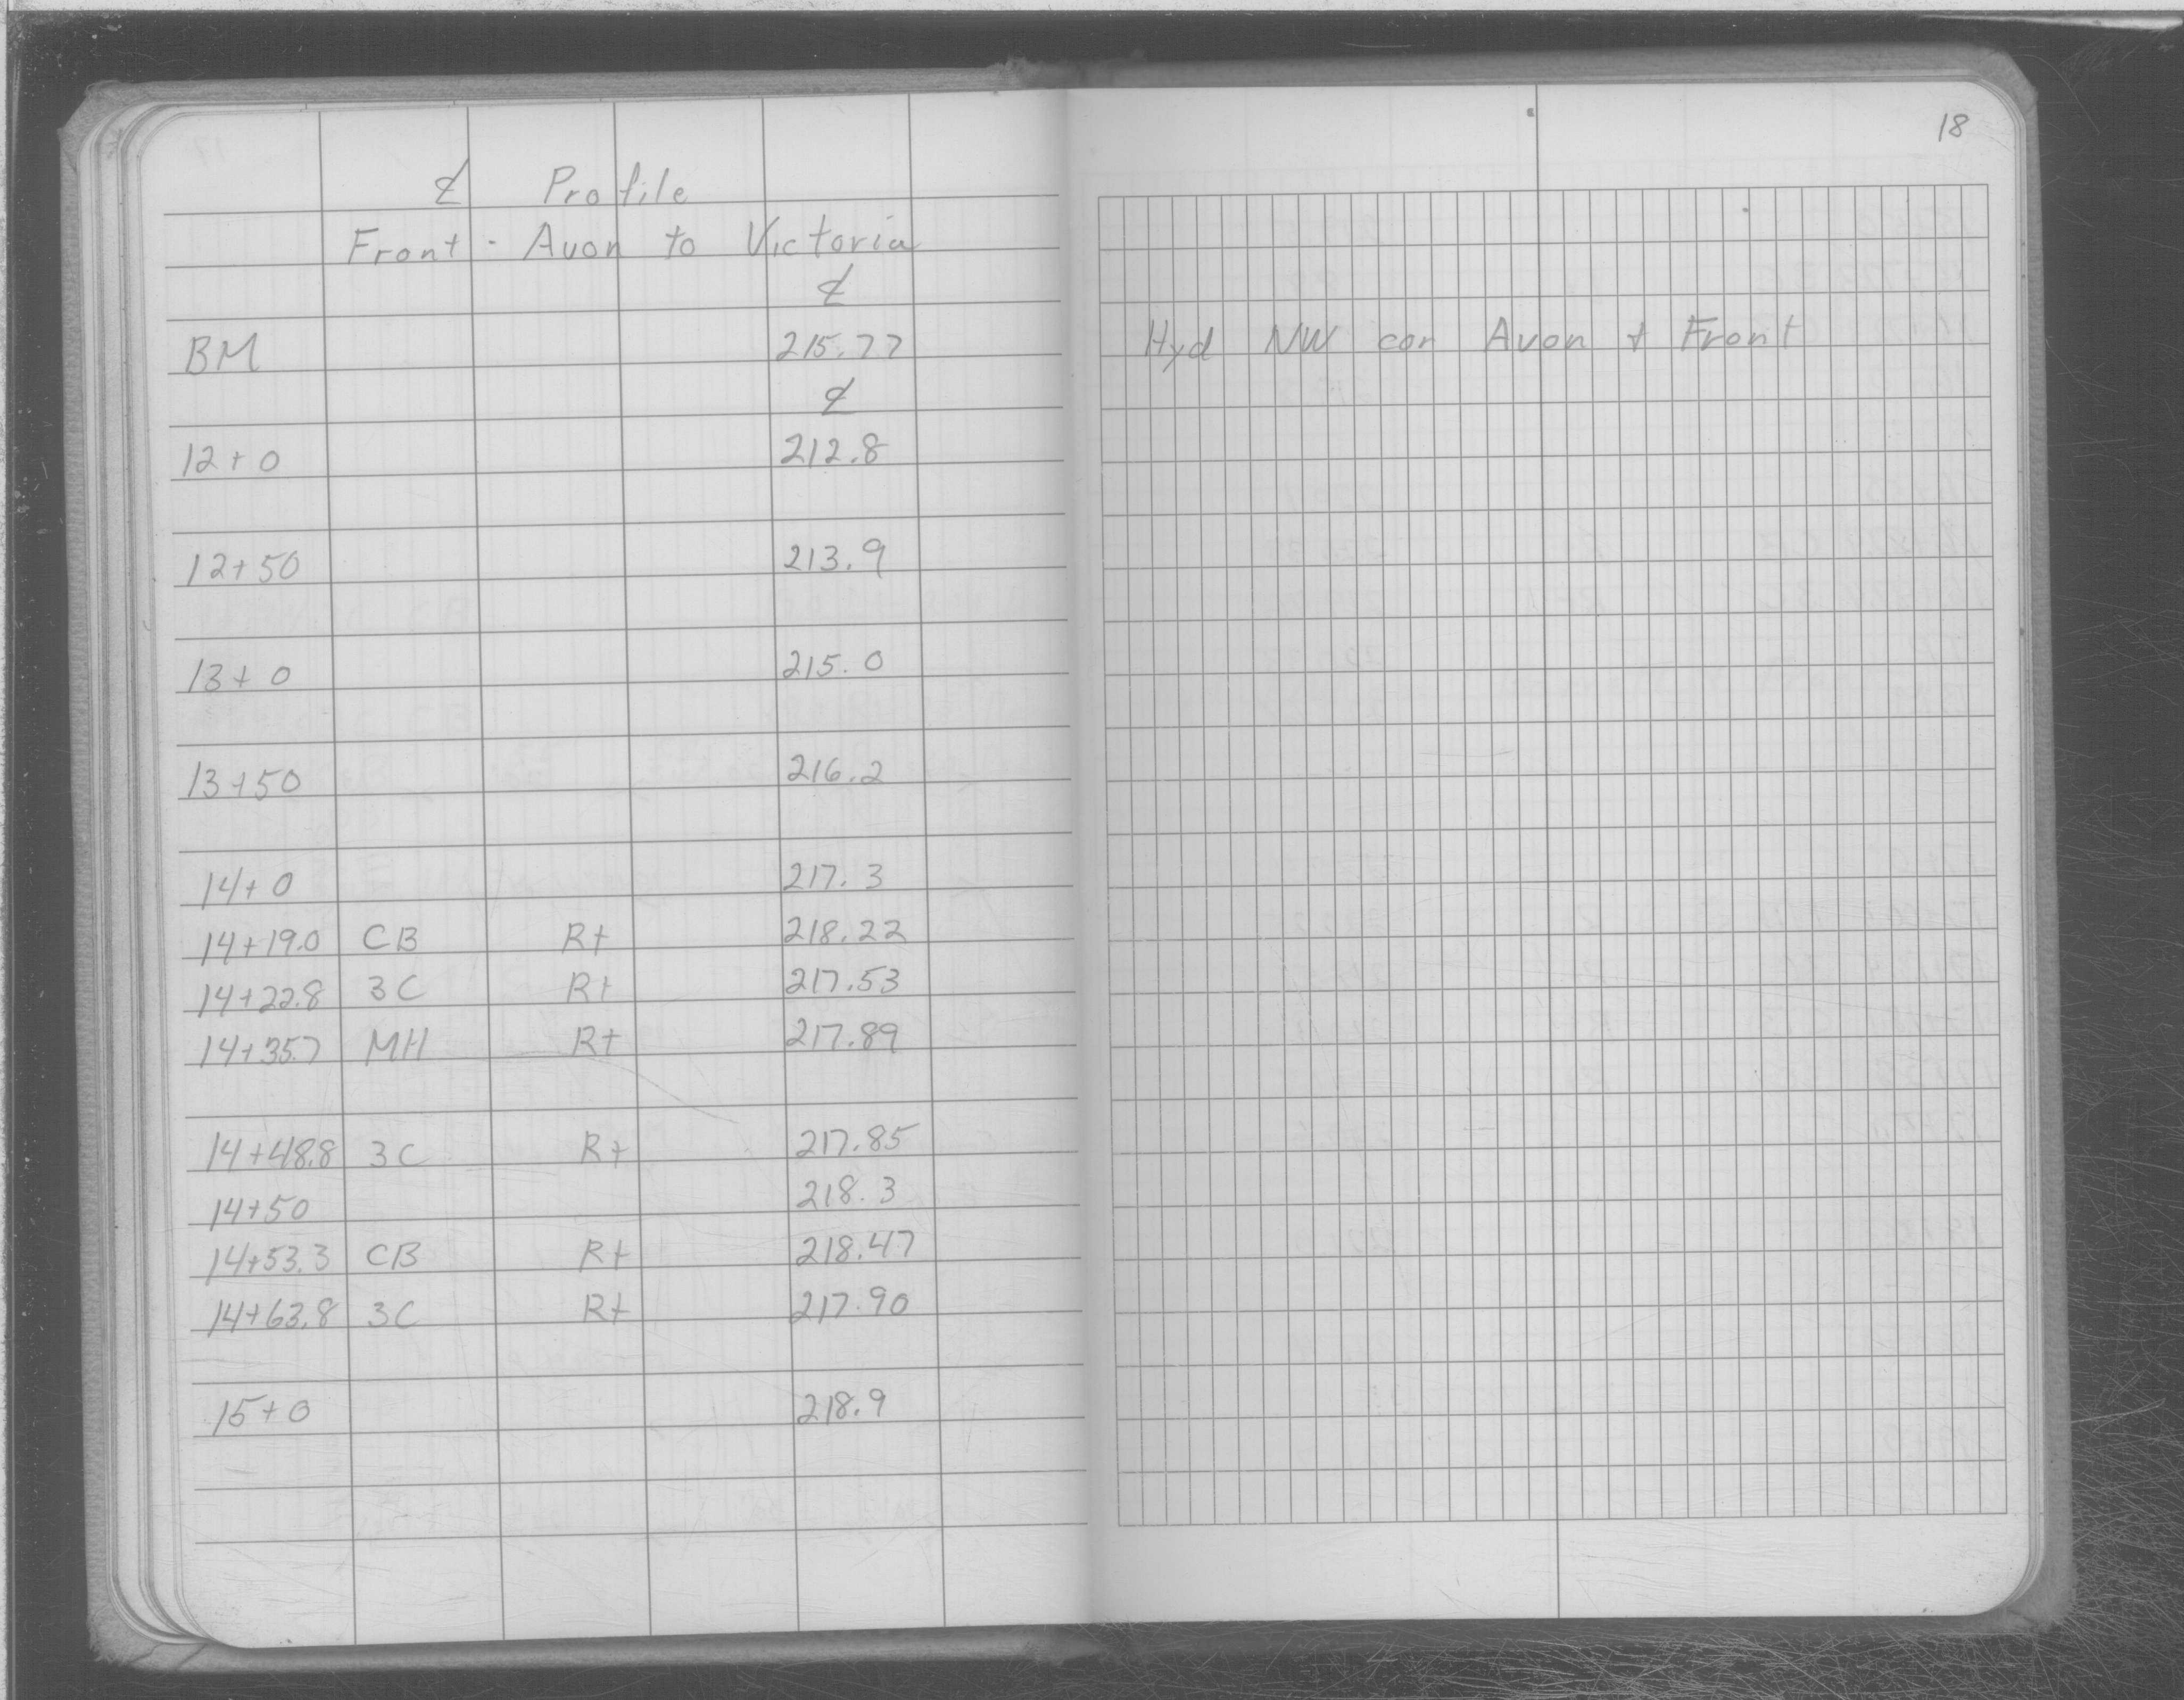 18
℄ Profile
Front - Avon to Victoria
℄
BM 215.77 Hyd NW cor Avon + Front
℄
12+0 212.8
12+50 213.9
13+0 215.0
13+50 216.2
14+0 217.3
14+19.0 CB Rt 218.22
14+22.8 3C Rt 217.53
14+35.7 MH Rt 217.89
14+48.8 3C Rt 217.85
14+50 218.3
14+53.3 CB Rt 218.47
14+63.8 3C Rt 217.90
15+0 218.9